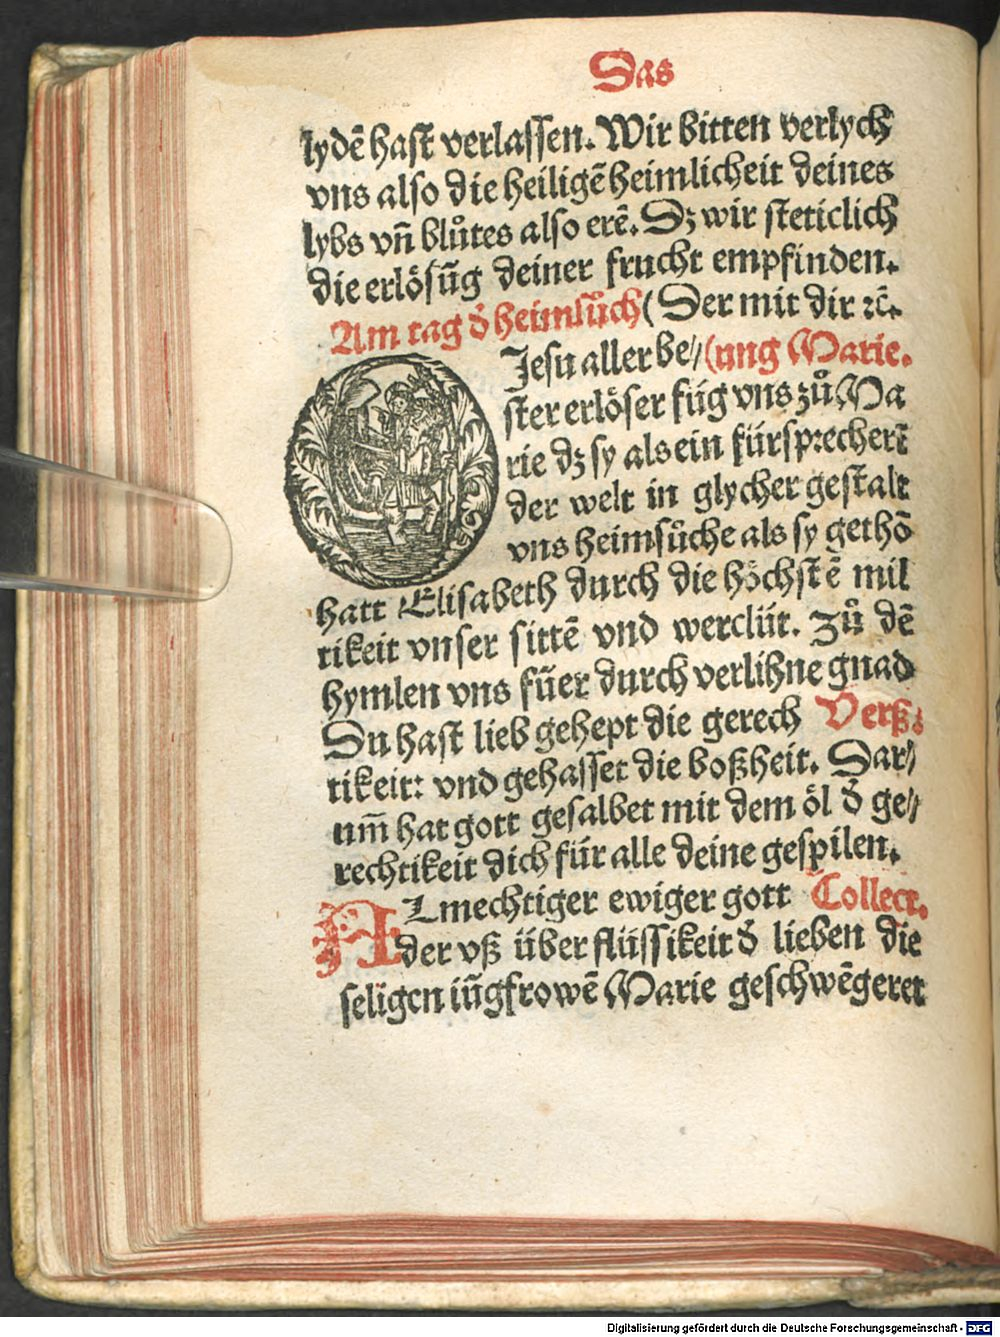 Das
lydē hast verlassen. Wir bitten verlych
vns also die heiligē heimlicheit deines
lybs vñ blůtes also erē. Dz wir steticlich
die erlösūg deiner frucht empfinden.
Am tag d̄ heimsůch (Der mit dir ⁊c̄.
Jesu aller be⸗ (ung Marie.
ster erlöser füg vns zů Ma
rie dz sy als ein fürsprecherī
der welt in glycher gestalt
vns heimsůche als sy gethō
hatt Elisabeth durch die höchstē mil
tikeit vnser sittē vnd werclüt. Zů dē
hymlen vns füer durch verlihne gnad
Du hast lieb gehept die gerech Verß.
tikeit: vnd gehasset die boßheit. Dar⸗
um̄ hat gott gesalbet mit dem öl d̄ ge⸗
rechtikeit dich für alle deine gespilen.
ALmechtiger ewiger gott Collect.
der vß überflüssikeit d̄ lieben die
seligen iūgfrowē Marie geschwēgeret
Digitalisierung gefördert durch die Deutsche Forschungsgemeinschaft - DFG